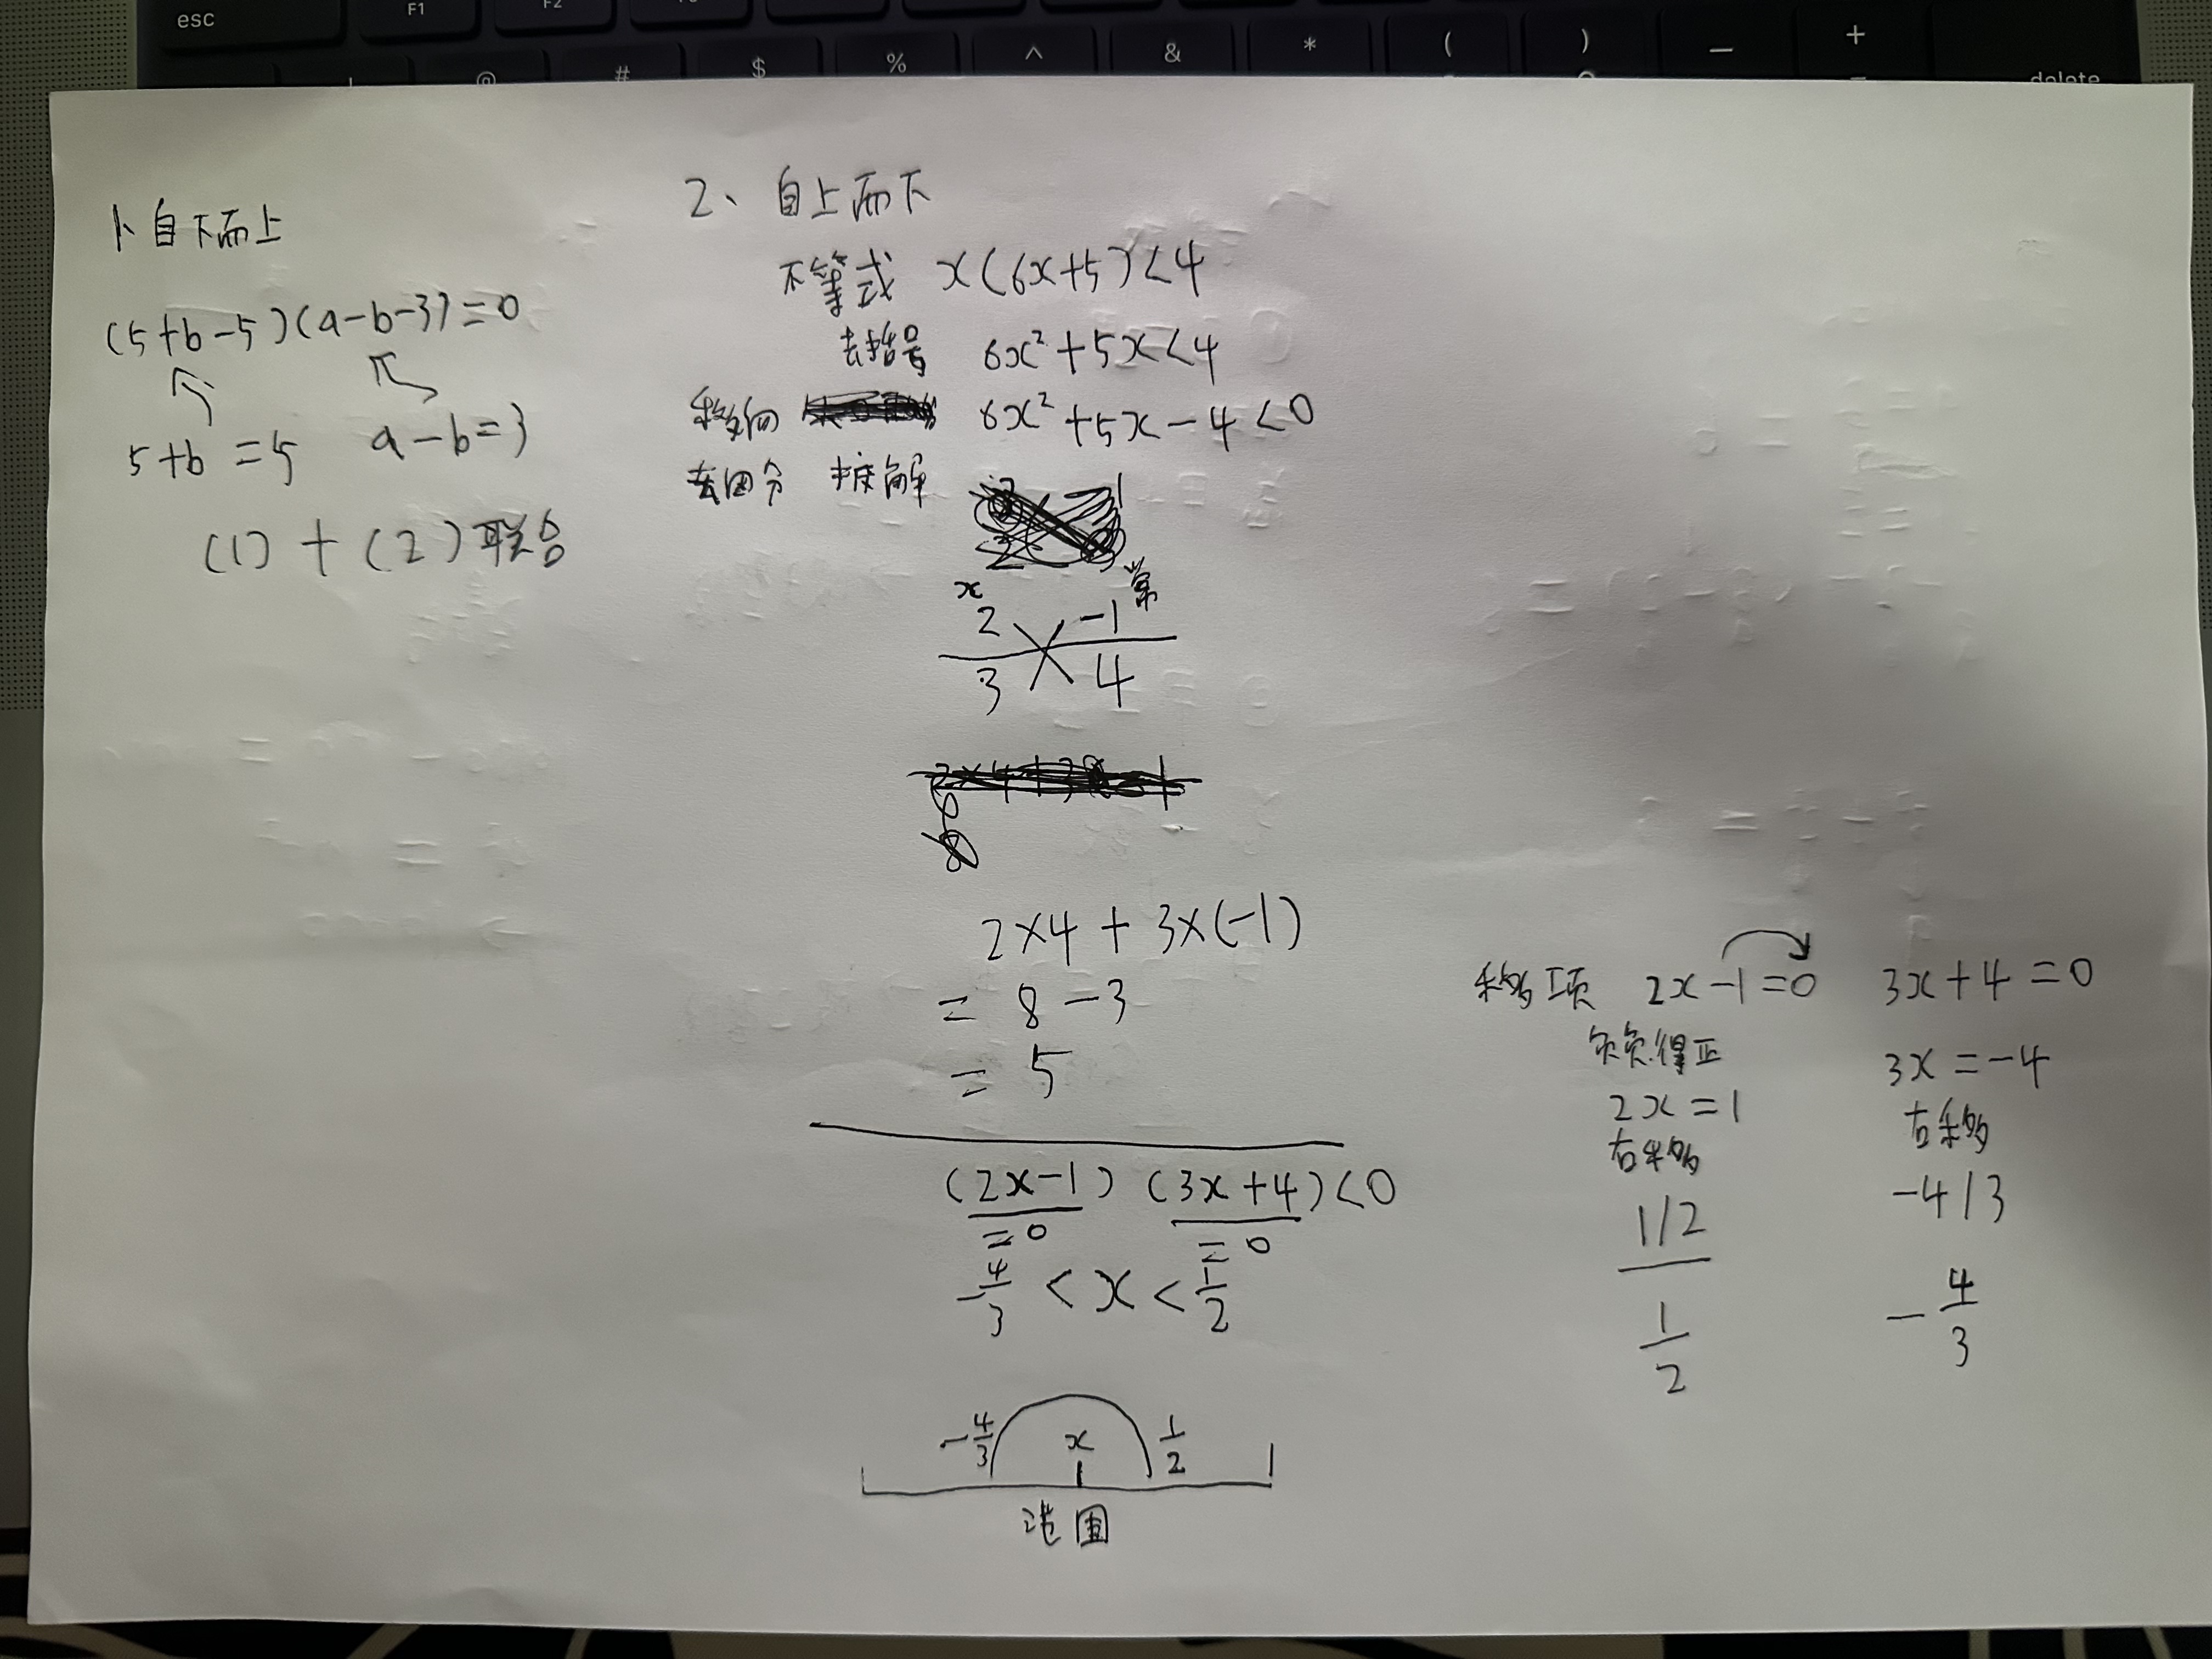 esc F1 F2
@ # $ % ^ & * ( ) — + delete
1、自下而上
(5+b-5)(a-b-3)=0
5+b=5 a-b=3
(1)+(2)联合
2、自上而下
不等式 x(6x+5)<4
去括号 6x²+5x<4
移向 6x²+5x-4<0
去因分 解
x 常
2 -1
3 4
2×4+3×(-1)
= 8-3
= 5
(2x-1)(3x+4)<0
=0 =0
-4/3 < x < 1/2
-4/3 x 1/2
范围
移项 2x-1=0 3x+4=0
负负得正 3x=-4
2x=1 右移
右移 -4/3
1/2
1/2 -4/3